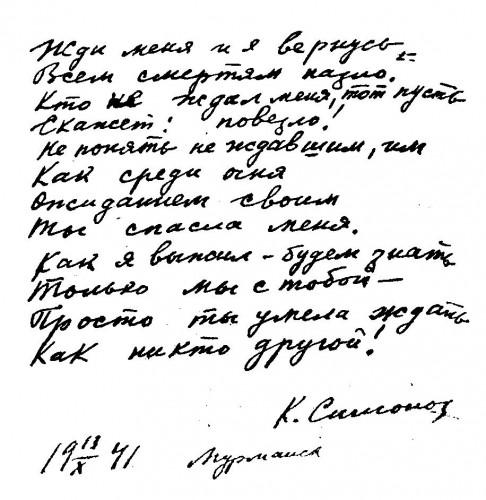 Жди меня и я вернусь
Всем смертям назло.
Кто не ждал меня, тот пусть
Скажет: повезло!
Не понять не ждавшим, им
Как среди огня
Ожиданием своим
Ты спасла меня.
Как я выжил - будем знать
Только мы с тобой -
Просто ты умела ждать
Как никто другой!
К. Симонов
19 13/X 41 Мурманск